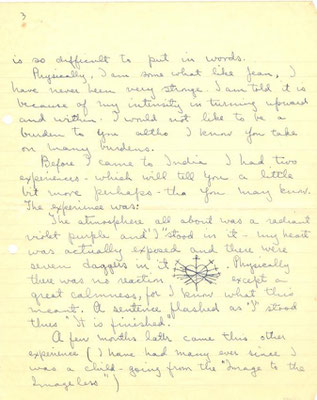 3
is so difficult to put in words.
Physically, I am some what like Jean, I
have never been very strong. I am told it is
because of my intensity in turning upward
and within. I would not like to be a
burden to You altho I know You take
on many burdens.
Before I came to India I had two
experiences - which will tell You a little
bit more perhaps - tho You may know.
The experience was:
The atmosphere all about was a radiant
violet purple and "I" stood in it - my heart
was actually exposed and there were
seven daggers in it. Physically
there was no reaction except a
great calmness, for I knew what this
meant. A sentence flashed as "I" stood
thus "It is finished".
A few months later came this other
experience (I have had many ever since I
was a child - going from the "Image to the
Imageless")